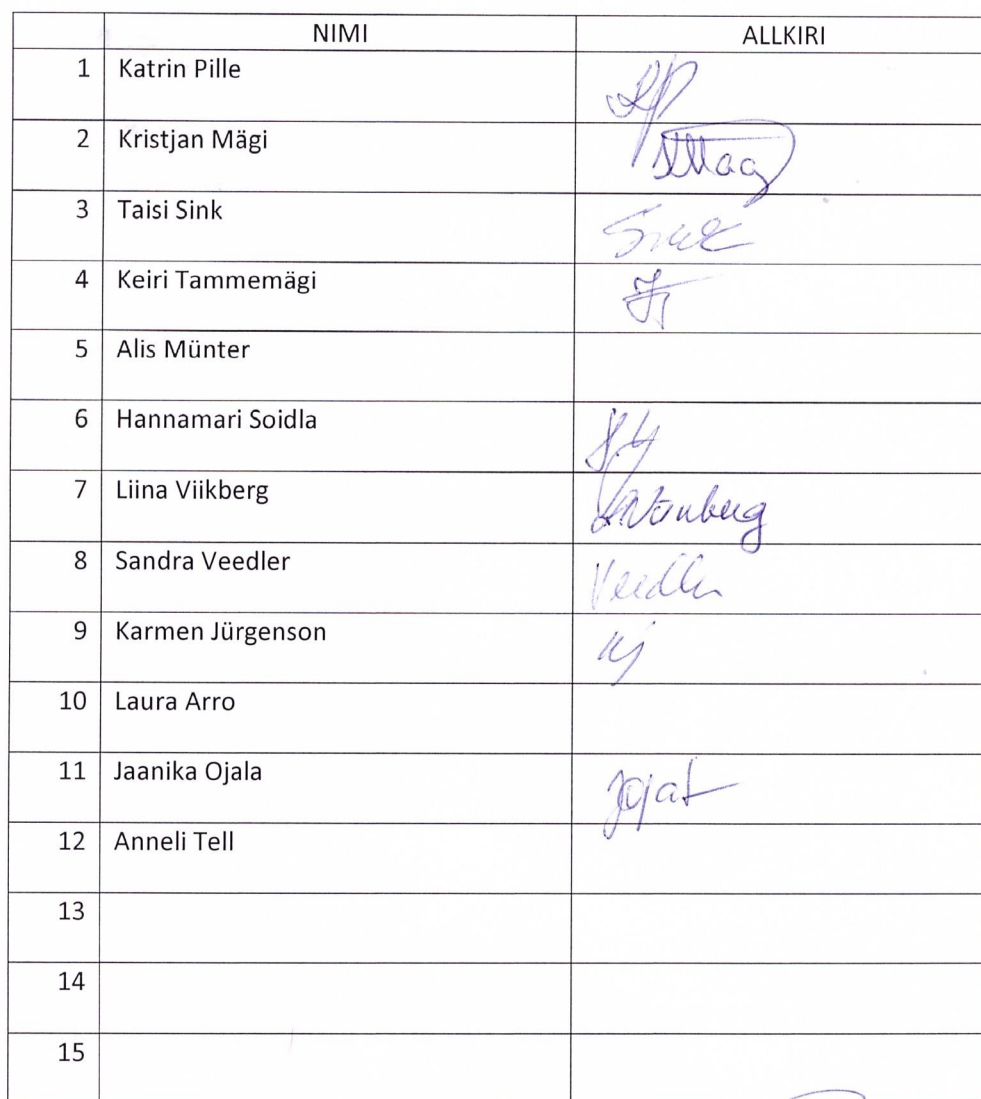 NIMI ALLKIRI
1 Katrin Pille
2 Kristjan Mägi
3 Taisi Sink
4 Keiri Tammemägi
5 Alis Münter
6 Hannamari Soidla
7 Liina Viikberg
8 Sandra Veedler Veedler
9 Karmen Jürgenson KJ
10 Laura Arro
11 Jaanika Ojala
12 Anneli Tell
13
14
15